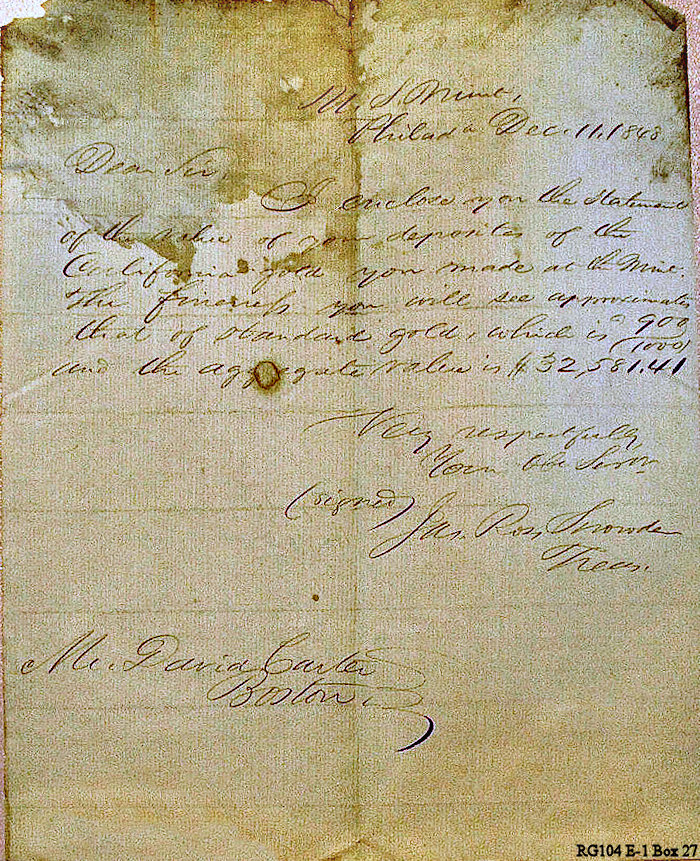 U. S. Mint,
Philad a Dec. 11, 1848
Dear Sir
I enclose you the Statement
of the value of your deposites of the
California gold you made at the Mint.
The fineness you will see approximates
that of standard gold, which is 900
1000
and the aggregate value is $32,581.41
Very respectfully
Your Obt Servt
(signed) Jas. Ross Snowden
Treas.
Mr. David Carter
Boston
RG104 E-1 Box 27